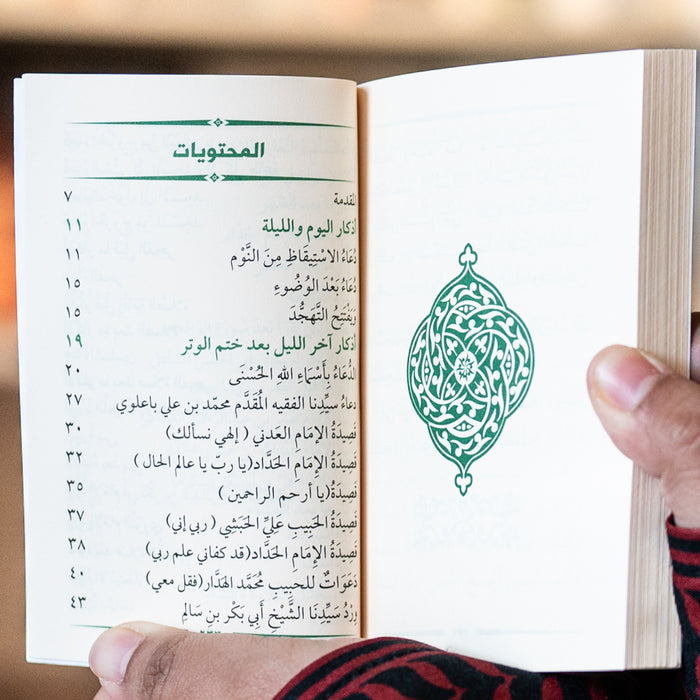 المحتويات
المقدمة ٧
أذكار اليوم والليلة ١١
دُعَاءُ الاسْتِيقَاظِ مِنَ النَّوْم ١١
دُعَاءُ بَعْدَ الوُضُوءِ ١٥
وَيَفْتَتِحُ التَّهَجُّدَ ١٥
أذكار آخر الليل بعد ختم الوتر ١٩
الدُّعَاءُ بِأَسْمَاءِ اللهِ الحُسْنَى ٢٠
دعاءُ سيِّدِنا الفقيه المُقَدَّم محمّد بن علي باعلوي ٢٧
قَصِيدَةُ الإِمَامِ العَدني ( إلهي نسألك) ٣٠
قَصِيدَةُ الإِمَامِ الحَدَّاد(يا ربّ يا عالم الحال ) ٣٢
قَصِيدَةُ(يا أرحم الراحمين ) ٣٥
قَصِيدَةُ الحَبِيبِ عَلِيِّ الحَبَشِي ( ربي إني) ٣٧
قَصِيدَةُ الإِمَامِ الحَدَّاد(قد كفاني علم ربي) ٣٨
دَعَوَاتٌ للحبِيبِ مُحَمَّد الهَدَّار(فقل معي) ٤٠
وِرْدُ سَيِّدِنَا الشَّيْخِ أَبِي بَكْرِ بنِ سَالِمِ ٤٣